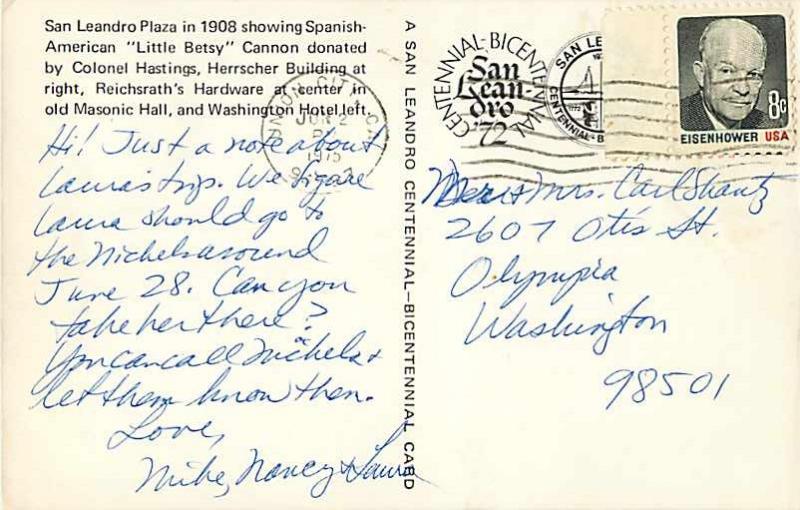 San Leandro Plaza in 1908 showing Spanish-
American "Little Betsy" Cannon donated
by Colonel Hastings, Herrscher Building at
right, Reichsrath's Hardware at center in
old Masonic Hall, and Washington Hotel left.
Hi! Just a note about
Laura's trip. We figure
Laura should go to
the Nichels around
June 28. Can you
take her there?
You can call Nichels &
let them know then.
Love,
Mike, Nancy & Laura
A SAN LEANDRO CENTENNIAL-BICENTENNIAL CARD
UNION CITY CA
JUN 2
PM
1975
CENTENNIAL-BICENTENNIAL
San
Lean-
dro
'72
SAN LE
CENTENNIAL-B
8c
EISENHOWER USA
Mr & Mrs. Carl Shantz
2607 Otis St.
Olympia
Washington
98501